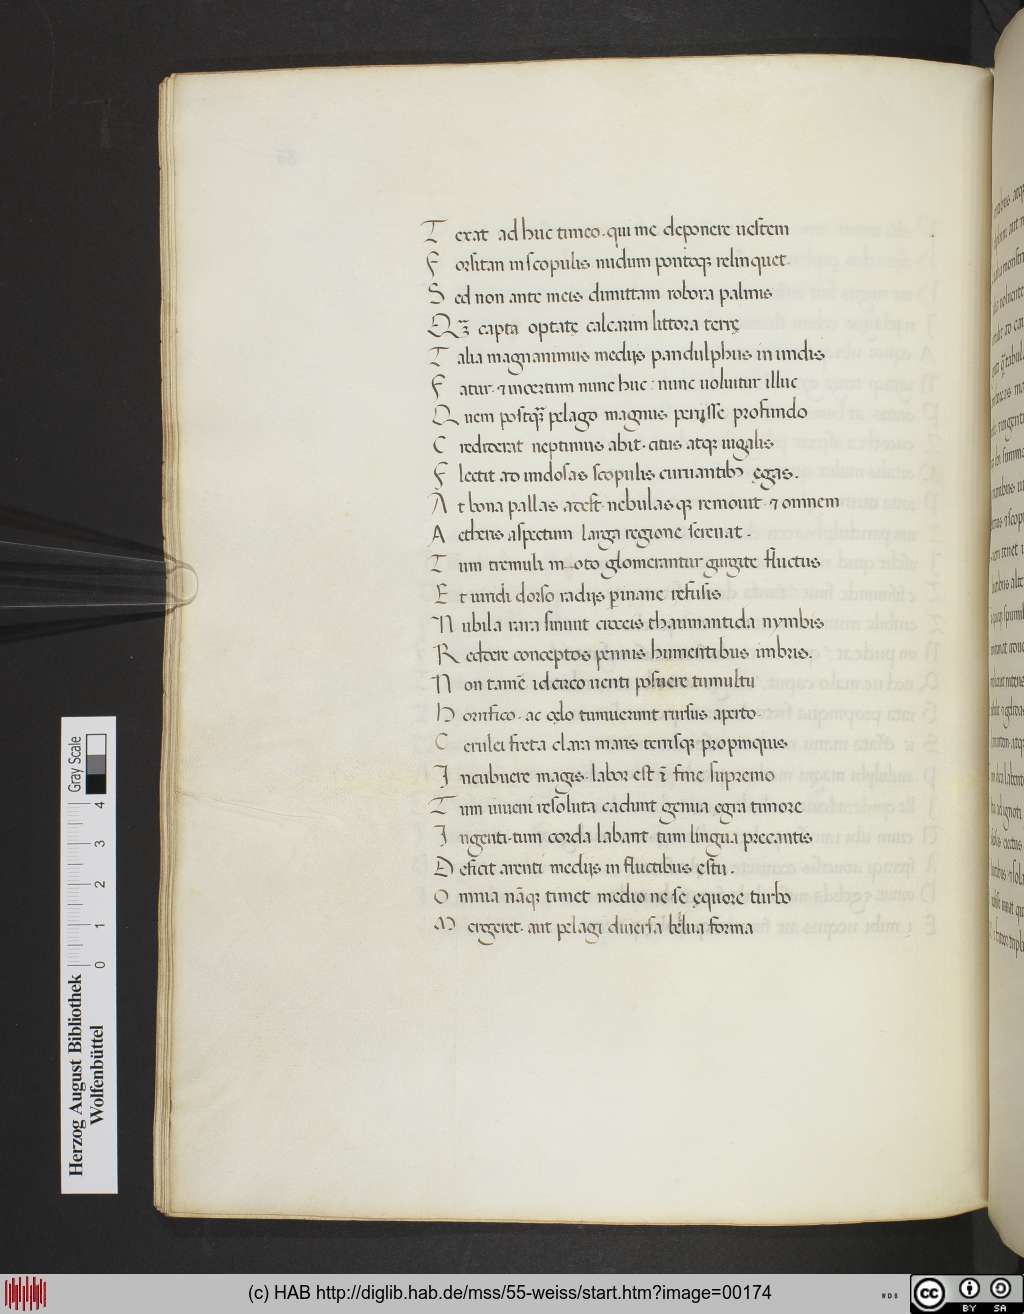 T exat adhuc timeo. qui me deponere uestem
F orsitan inscopulis nudum pontoq; relinquet.
S ed non ante meis dimittam robora palmis
Qꝫ capta optatę calcarim littora terrę
T alia magnanimus medijs pandulphus in undis
F atur. ⁊ incertum nunc huc: nunc uoluitur illuc
Q uem postq̃ꝫ pelago magnus perijsse profundo
C rediderat neptunus abit. citus atq; iugalis
F lectit ad undosas scopulis curuantibꝫ ęgas.
A t bona pallas adest. nebulas q; remouit. ⁊ omnem
A etheris aspectum larga regione serenat.
T um tremuli in oto glomerantur gurgite fluctus
E t undi dorso radijs ꝑinane refusis
N ubila rara sinunt croceis thaumantida nymbis
R eddere conceptos pennis humentibus imbris.
N on tam̄e idcirco uenti posuere tumultu
H orrifico. ac cęlo tumuerunt rursus aperto.
C erulei freta clara maris terrisq; propinquis
I ncubuere magis. labor est ī fine supremo
T um iuueni resoluta cadunt genua egra timore
I ngenti. tum corda labant tum lingua precantis
D eficit arenti medijs in fluctibus ęstu.
O mnia nãq; timet medio ne se ęquore turbo
M ergeret. aut pelagi diuersa belua forma
Herzog August Bibliothek
Wolfenbüttel
0 1 2 3 4
Gray Scale
(c) HAB http://diglib.hab.de/mss/55-weiss/start.htm?image=00174
cc BY SA